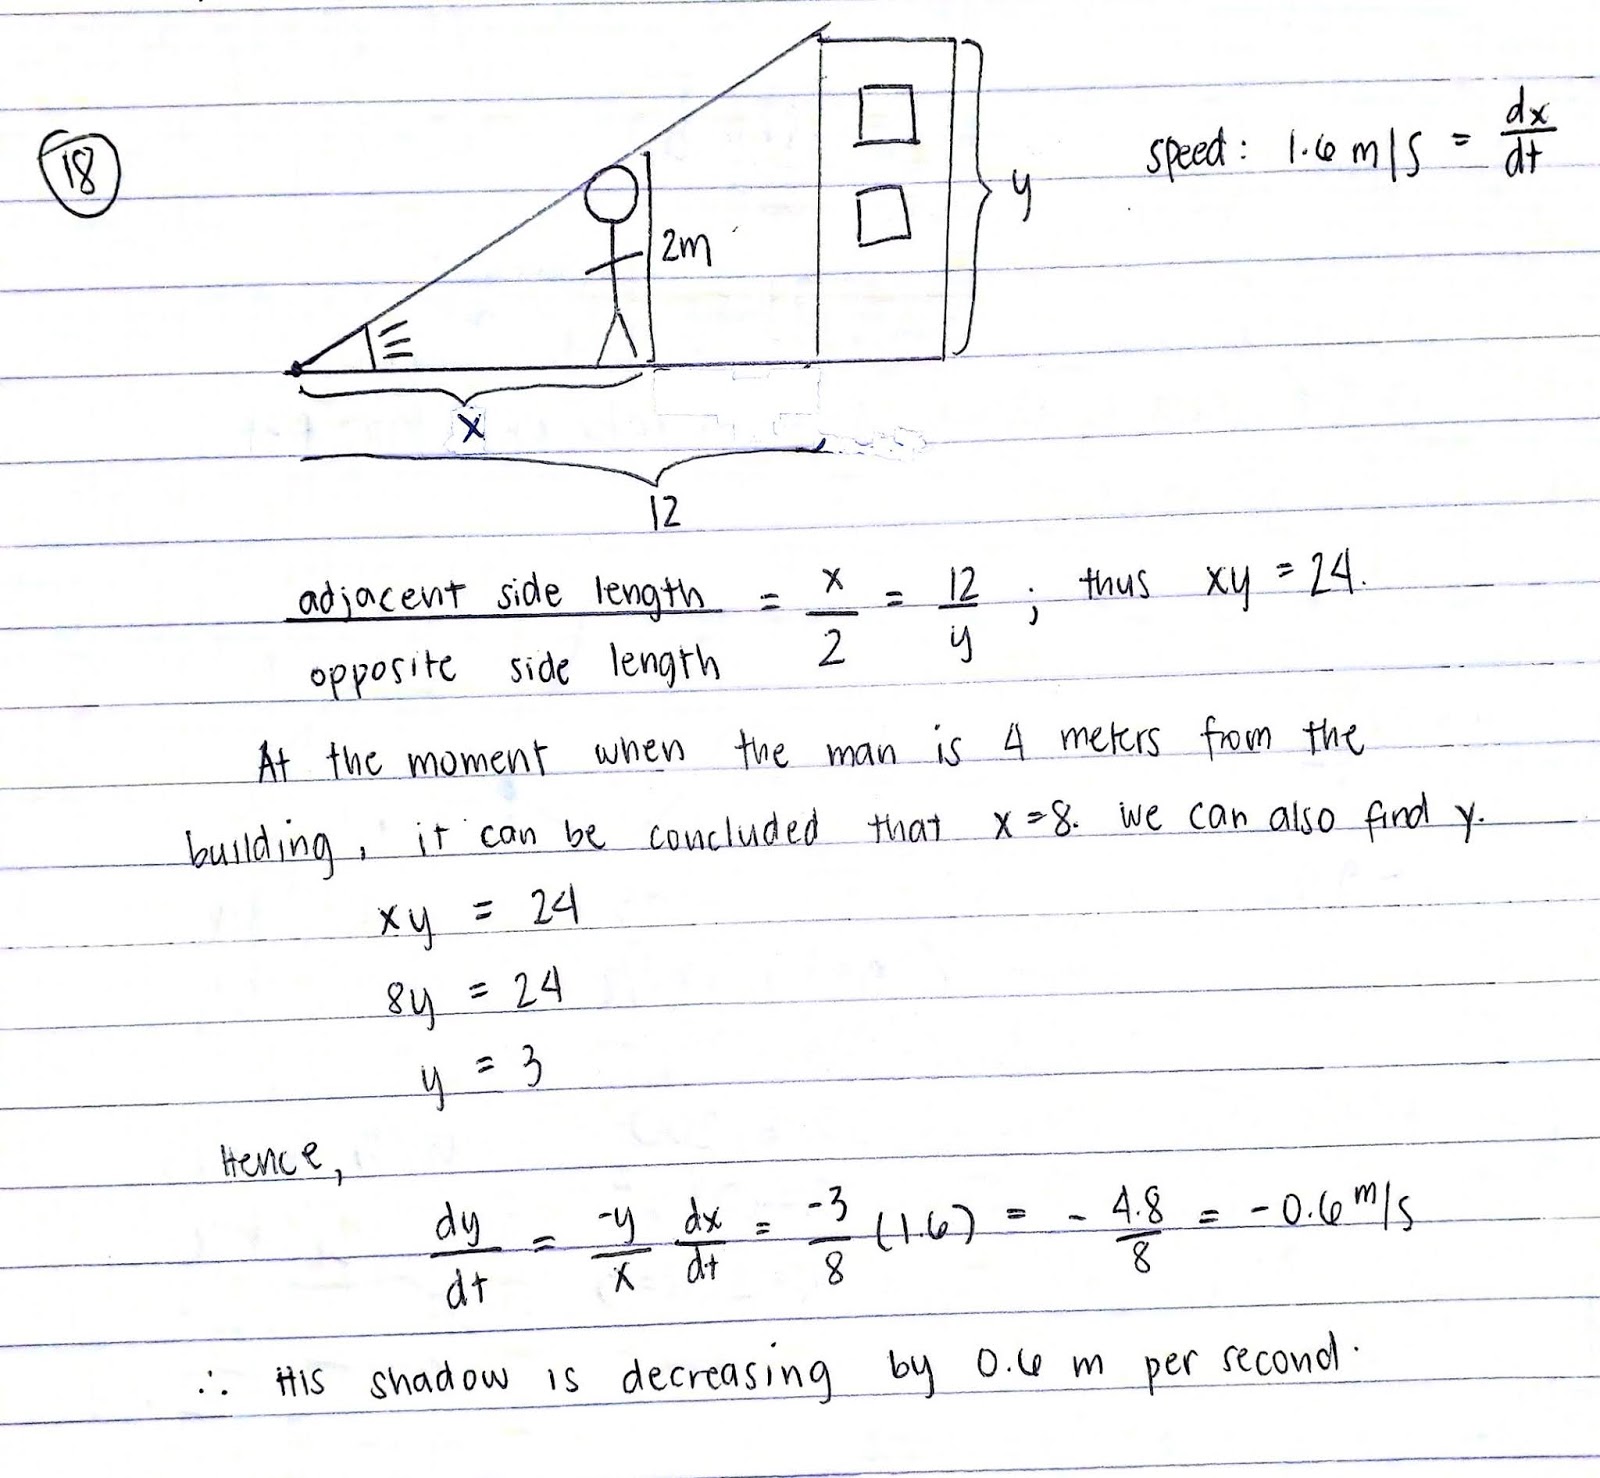 18
2m
y
speed: 1.6 m/s = dx/dt
x
12
adjacent side length / opposite side length = x/2 = 12/y ; thus xy = 24.
At the moment when the man is 4 meters from the
building, it can be concluded that x=8. we can also find y.
xy = 24
8y = 24
y = 3
Hence,
dy/dt = -y/x dx/dt = -3/8 (1.6) = - 4.8/8 = -0.6 m/s
∴ His shadow is decreasing by 0.6 m per second.